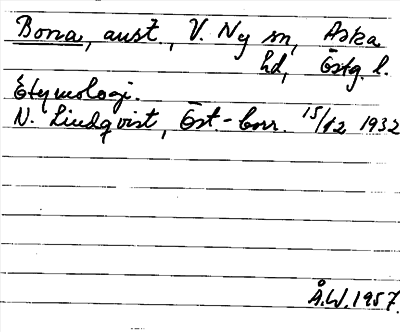 Borra, aust., V. Ny sn, Aska
hd, Östg. l.
Etymologi.
N. Lindqvist, Öst.-Corr. 15/12 1932
Å.W. 1957.